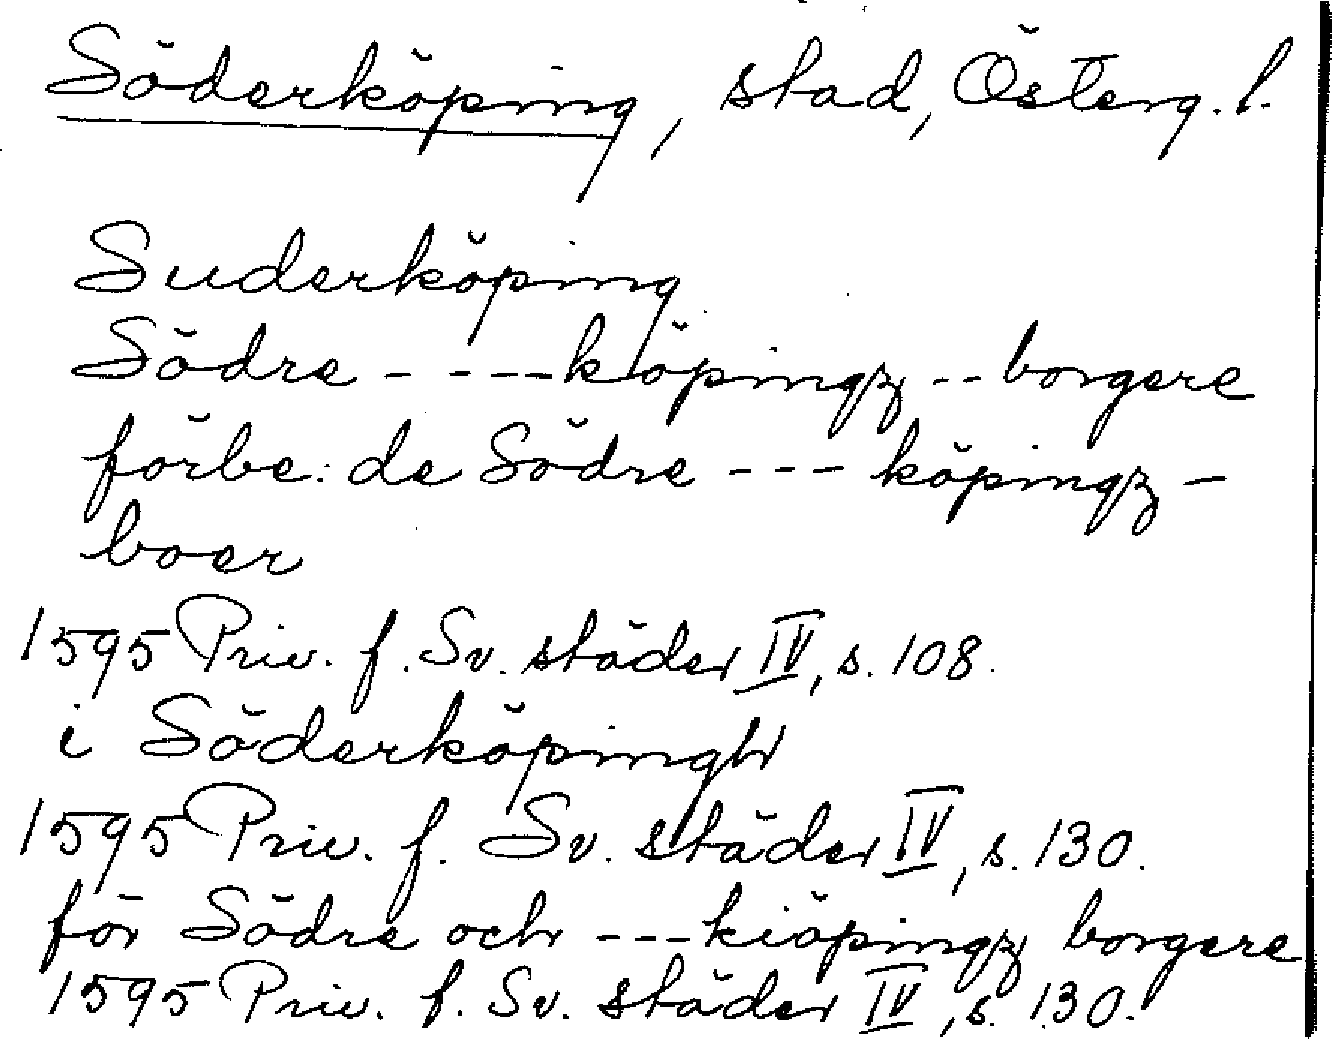 Söderköping, stad, Österg. l.
Suderköping
Södre - ---köpingz --borgere
förbe: de Södre --- köpingz -
boer
1595 Priv. f. Sv. städer IV, s. 108.
i Söderköpingh
1595 Priv. f. Sv. städer IV, s. 130.
för Södre och ---kiöpingz borgere
1595 Priv. f. Sv. städer IV, s. 130.